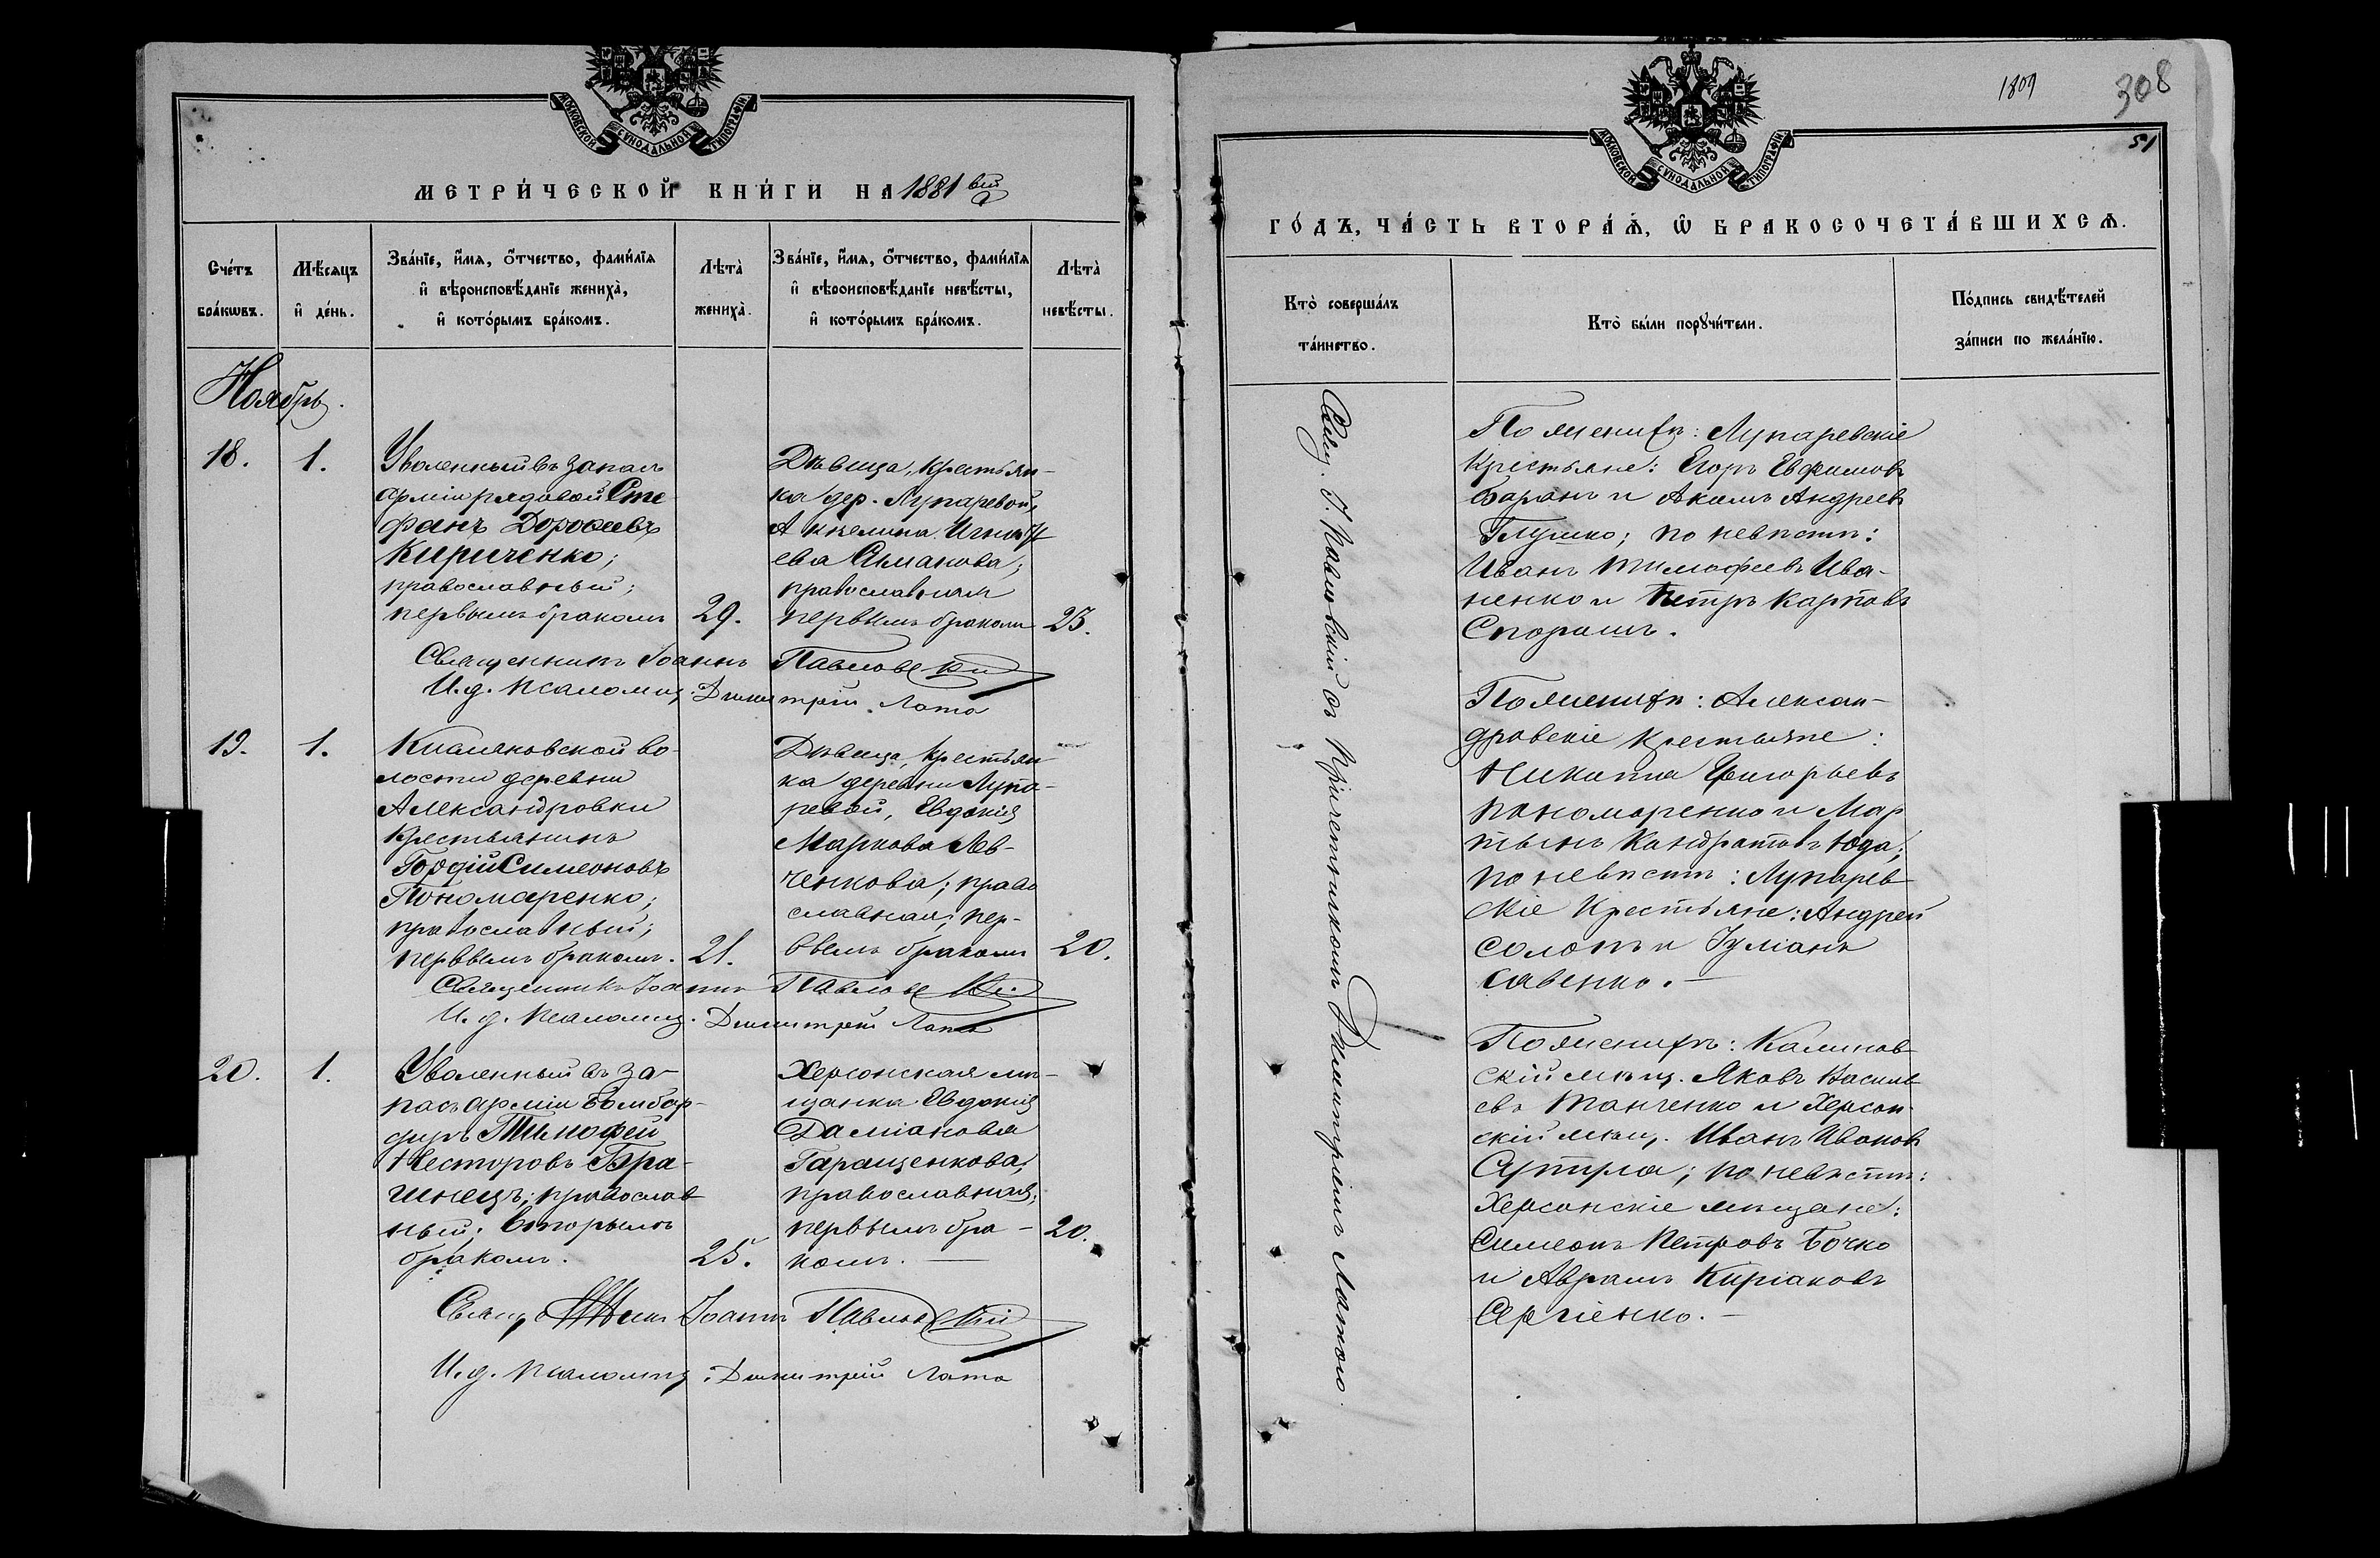 МОСКОВСКОЙ СУНОДАЛЬНОЙ ТИПОГРАФІИ
МЕТРИ́ЧЕСКОЙ КНИ́ГИ НА 1881 вый
Сче́тъ
бра́кѡвъ.
Мѣ́сяцъ
и҆ де́нь.
Зва́нїе, и҆́мѧ, ѻ҆́тчество, фами́лїѧ
и҆ вѣроисповѣ́данїе жениха̀,
и҆ кото́рымъ бра́комъ.
Лѣта̀
жениха̀.
Зва́нїе, и҆́мѧ, ѻ҆́тчество, фами́лїѧ
и҆ вѣроисповѣ́данїе невѣ́сты,
и҆ кото́рымъ бра́комъ.
Лѣта̀
невѣ́сты.
Ноябрь.
18.
1.
Уволенный въ запасъ
арміи рядовой Сте
фанъ Дороѳеевъ
Кириченко;
православный;
первымъ бракомъ
29.
Дѣвица, крестьян-
ка дер. Лупаревой,
Акилина Игнать
ева Симанова;
православная
первымъ бракомъ
23.
Священникъ Іоаннъ Павловскій
И. д. псаломщ. Димитрій Лата
19.
1.
волости деревни
Александровки
крестьянинъ
Гордій Симеоновъ
Пономаренко;
православный;
первымъ бракомъ.
21.
Дѣвица, крестьян-
ка деревни Лупа-
ревой, Евдокія
Маркова Лев-
ченкова; право
славная; пер-
вымъ бракомъ
20.
Священникъ Іоаннъ Павловскій
И. д. псаломщ. Димитрій Лата
20.
1.
Уволенный въ за-
пасъ арміи бомбар-
диръ Тимофей
Несторовъ Бра-
шнецъ; православ
ный; вторымъ
бракомъ.
25.
Херсонская мѣ-
щанка Евдокія
Даміанова
Гаращенкова,
православная;
первымъ бра-
комъ.
20.
Іоаннъ Павловскій
И. д. псаломщ. Димитрій Лата
1809
308
51
МОСКОВСКОЙ СУНОДАЛЬНОЙ ТИПОГРАФІИ
ГО́ДЪ, ЧА́СТЬ ВТОРА́Ѧ, Ѡ҆ БРАКОСОЧЕТА́ВШИХСѦ.
Кто̀ соверша́лъ
та́инство.
Кто̀ бы́ли порꙋчи́тели.
По́дпись свидѣ́телей
за́писи по жела́нїю.
Свящ. І. Павловскій съ причетникомъ Димитріемъ Латою
По женихѣ: Лупаревскіе
крестьяне: Егоръ Евфимовъ
Баранъ и Акимъ Андреевъ
Глушко; по невѣстѣ:
Иванъ Тимофеевъ Ива-
ненко и Петръ Карповъ
Спорышъ.
По женихѣ: Алексан-
дровскіе крестьяне:
Никита Григорьевъ
Пономаренко и Мар
тынъ Кандратовъ Юда;
по невѣстѣ: Лупарев
скіе крестьяне: Андрей
Солопъ и Іуліанъ
Савенко.
По женихѣ: Калинов
скій мѣщ. Яковъ Васильев
евъ Танченко и Херсон-
скій мѣщ. Иванъ Ивановъ
по невѣстѣ:
Херсонскіе мѣщане:
Симеонъ Петровъ Бочко
и Аврамъ Киріаковъ
Сергіенко.